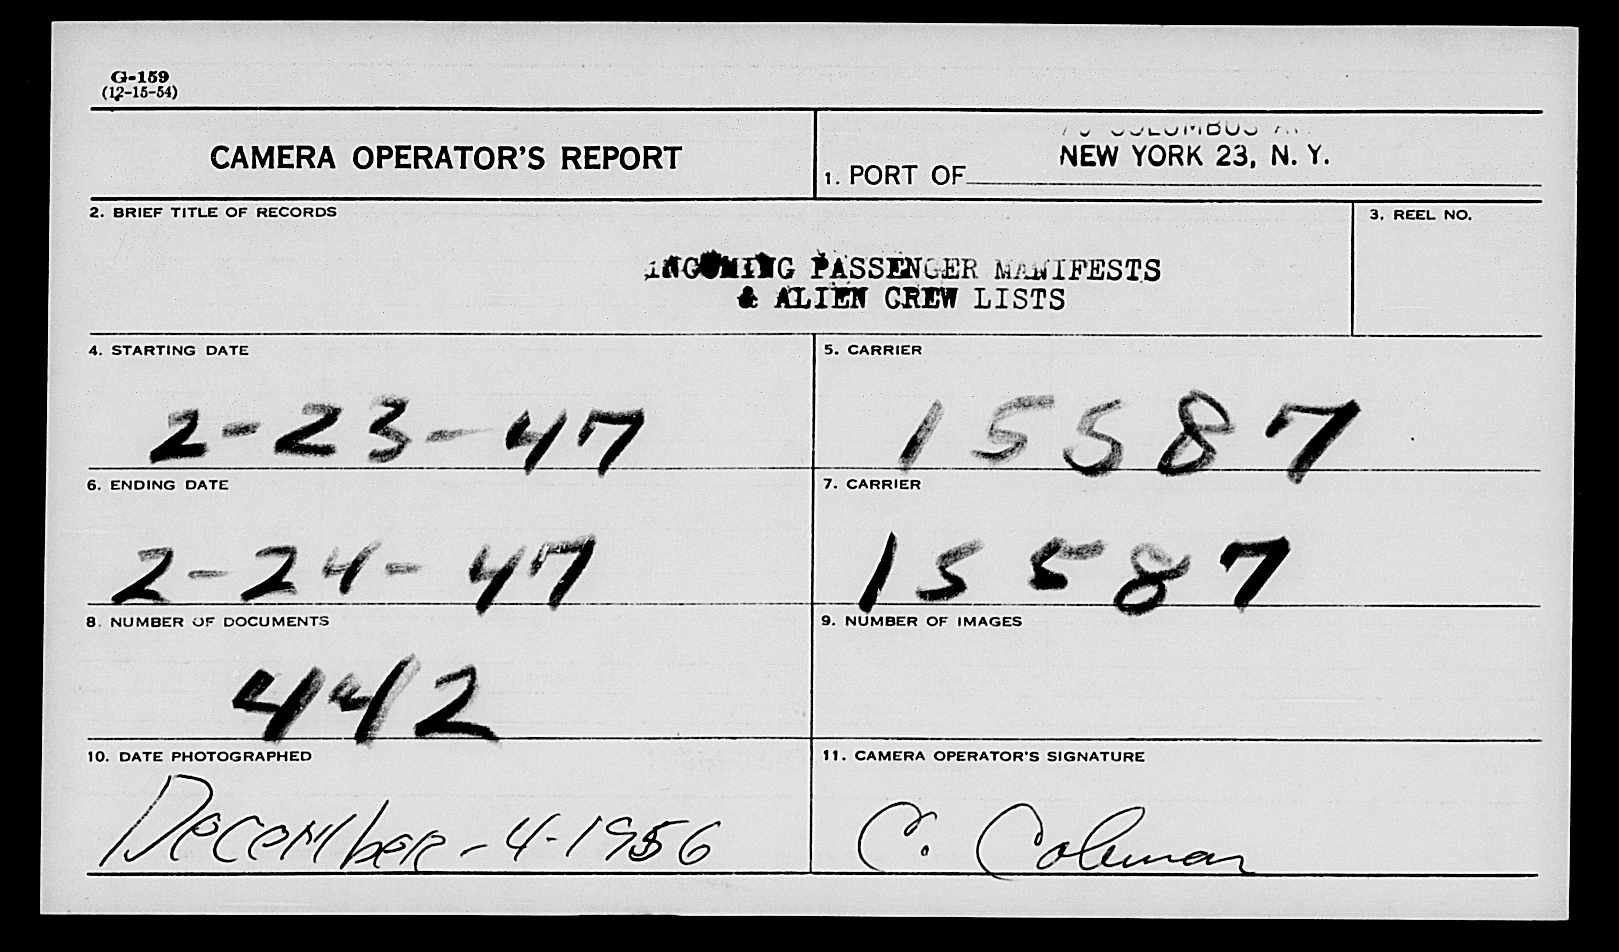 G-159
(12-15-54)
CAMERA OPERATOR'S REPORT
1. PORT OF
NEW YORK 23, N. Y.
2. BRIEF TITLE OF RECORDS
3. REEL NO.
INCOMING PASSENGER MANIFESTS
& ALIEN CREW LISTS
4. STARTING DATE
5. CARRIER
2-23-47
15587
6. ENDING DATE
7. CARRIER
2-24-47
15587
8. NUMBER OF DOCUMENTS
9. NUMBER OF IMAGES
442
10. DATE PHOTOGRAPHED
11. CAMERA OPERATOR'S SIGNATURE
December-4-1956
C. Coleman